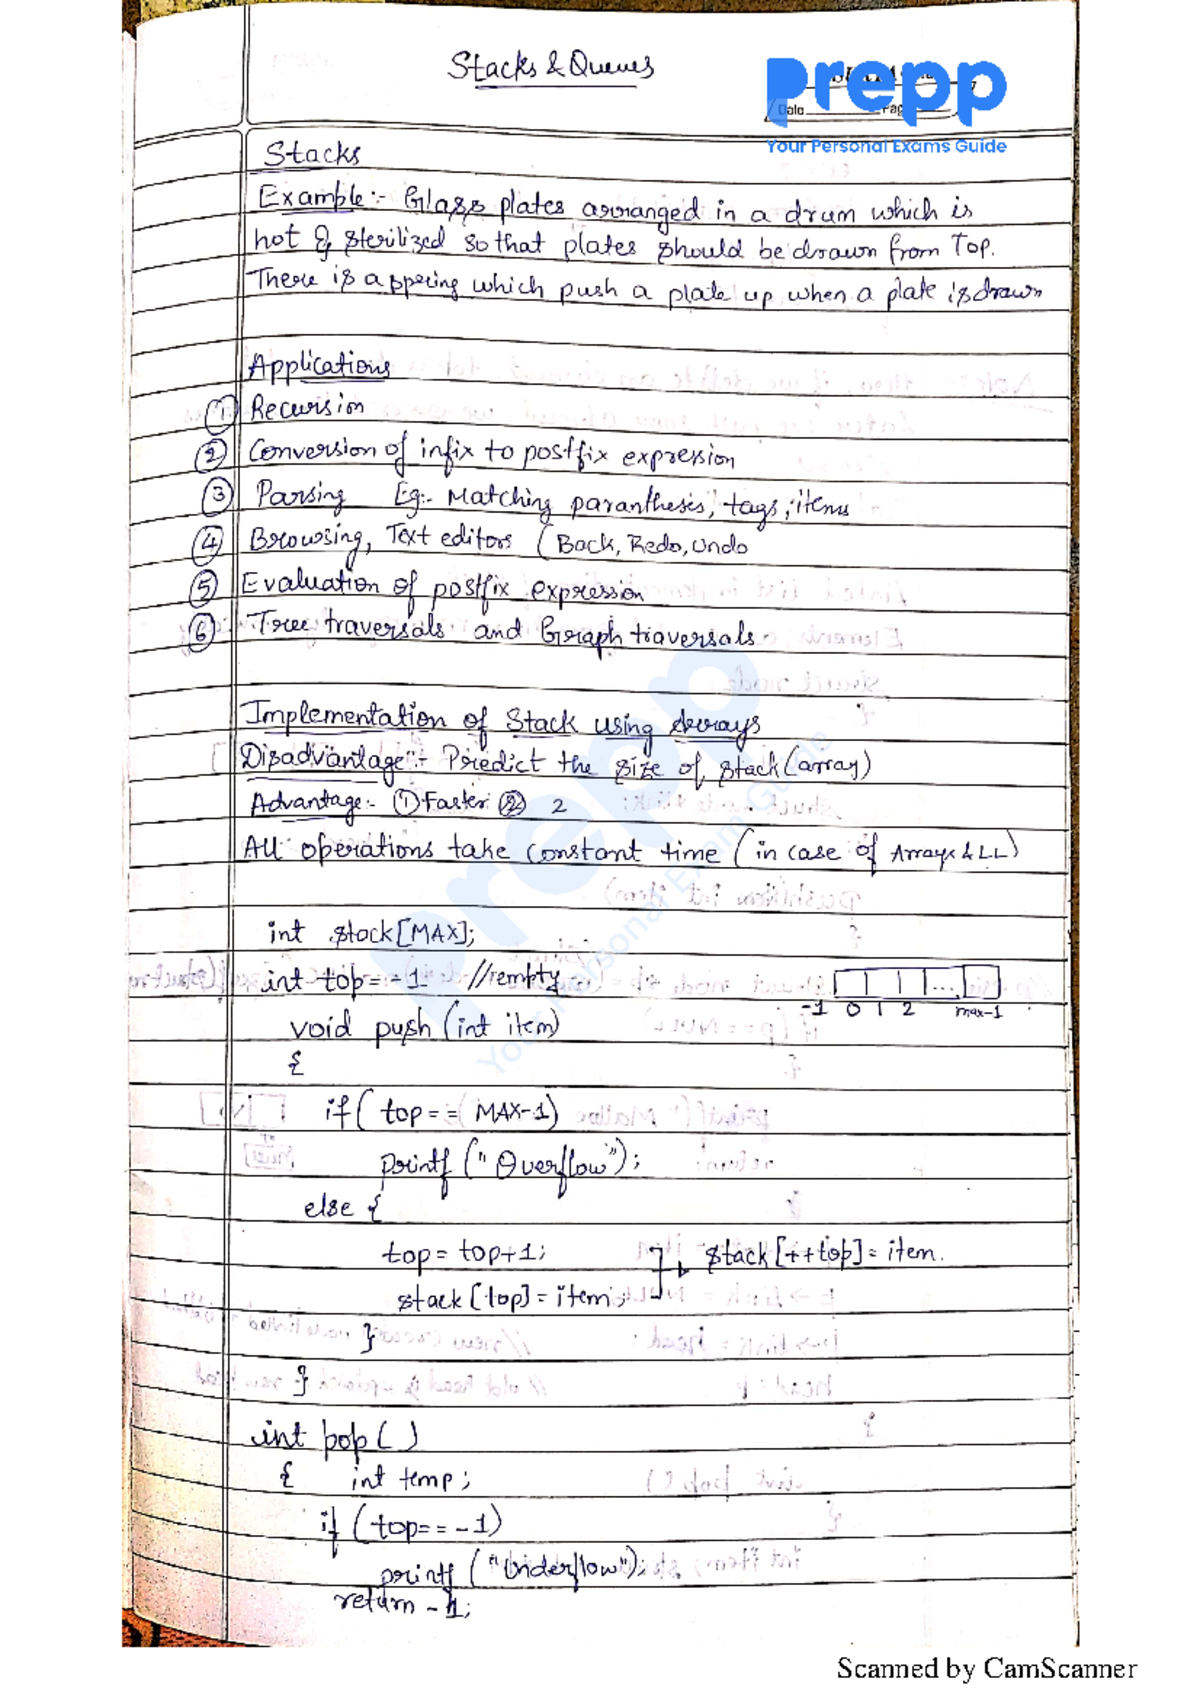 Stacks & Queues
prepp
Date Page
Your Personal Exams Guide
Stacks
Example:- Glass plates arranged in a drum which is
hot & sterilized so that plates should be drawn from Top.
There is a spring which push a plate up when a plate is drawn
Applications
① Recursion
② Conversion of infix to postfix expression
③ Parsing Eg:- Matching parantheses, tags, items
④ Browsing, Text editors (Back, Redo, Undo
⑤ Evaluation of postfix expression
⑥ Tree traversals and Graph traversals
Implementation of Stack using Arrays
Disadvantage:- Predict the size of stack(array)
Advantage:- ① Faster ② 2
All operations take constant time (in case of Arrays & LL)
int stack[MAX];
int top = -1 //empty
-1 0 1 2 ... max-1
void push (int item)
{
if( top == MAX-1)
printf (" Overflow");
else {
top = top+1; stack[++top] = item.
stack [top] = item;
}
}
int pop( )
{ int temp;
if (top == -1)
printf ("Underflow");
return -1;
prepp
Your Personal Exam Guide
Scanned by CamScanner